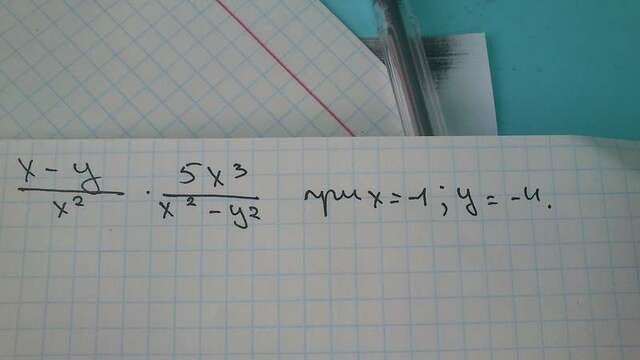 x - y / x² · 5x³ / x² - y² при x = -1; y = -4.